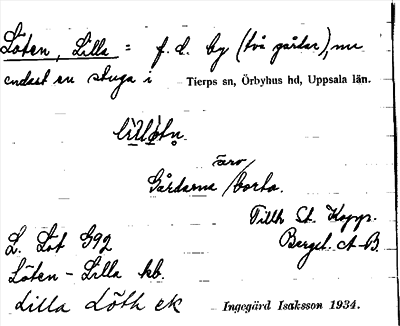 Löten, Lilla = f. d. by (två gårdar), nu
endast en stuga i Tierps sn, Örbyhus hd, Uppsala län.
lìllö̀tn̥
äro
Gårdarna / borta.
Tillh St. Kopp.
Bergsl. A-B.
L. Löt G92
Löten - Lilla kb.
Lilla Löth ek
Ingegärd Isaksson 1934.